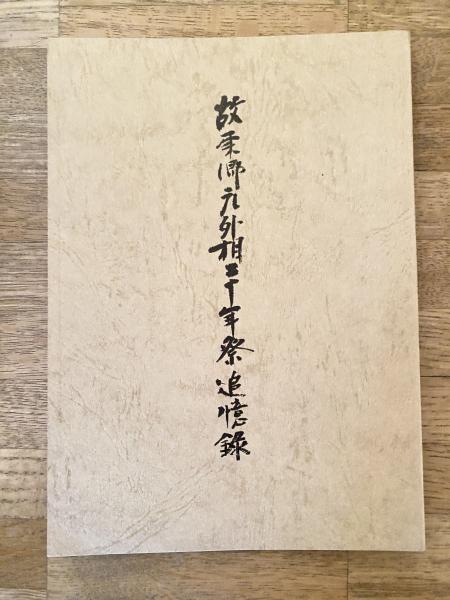 故東郷元外相五十年祭追憶録